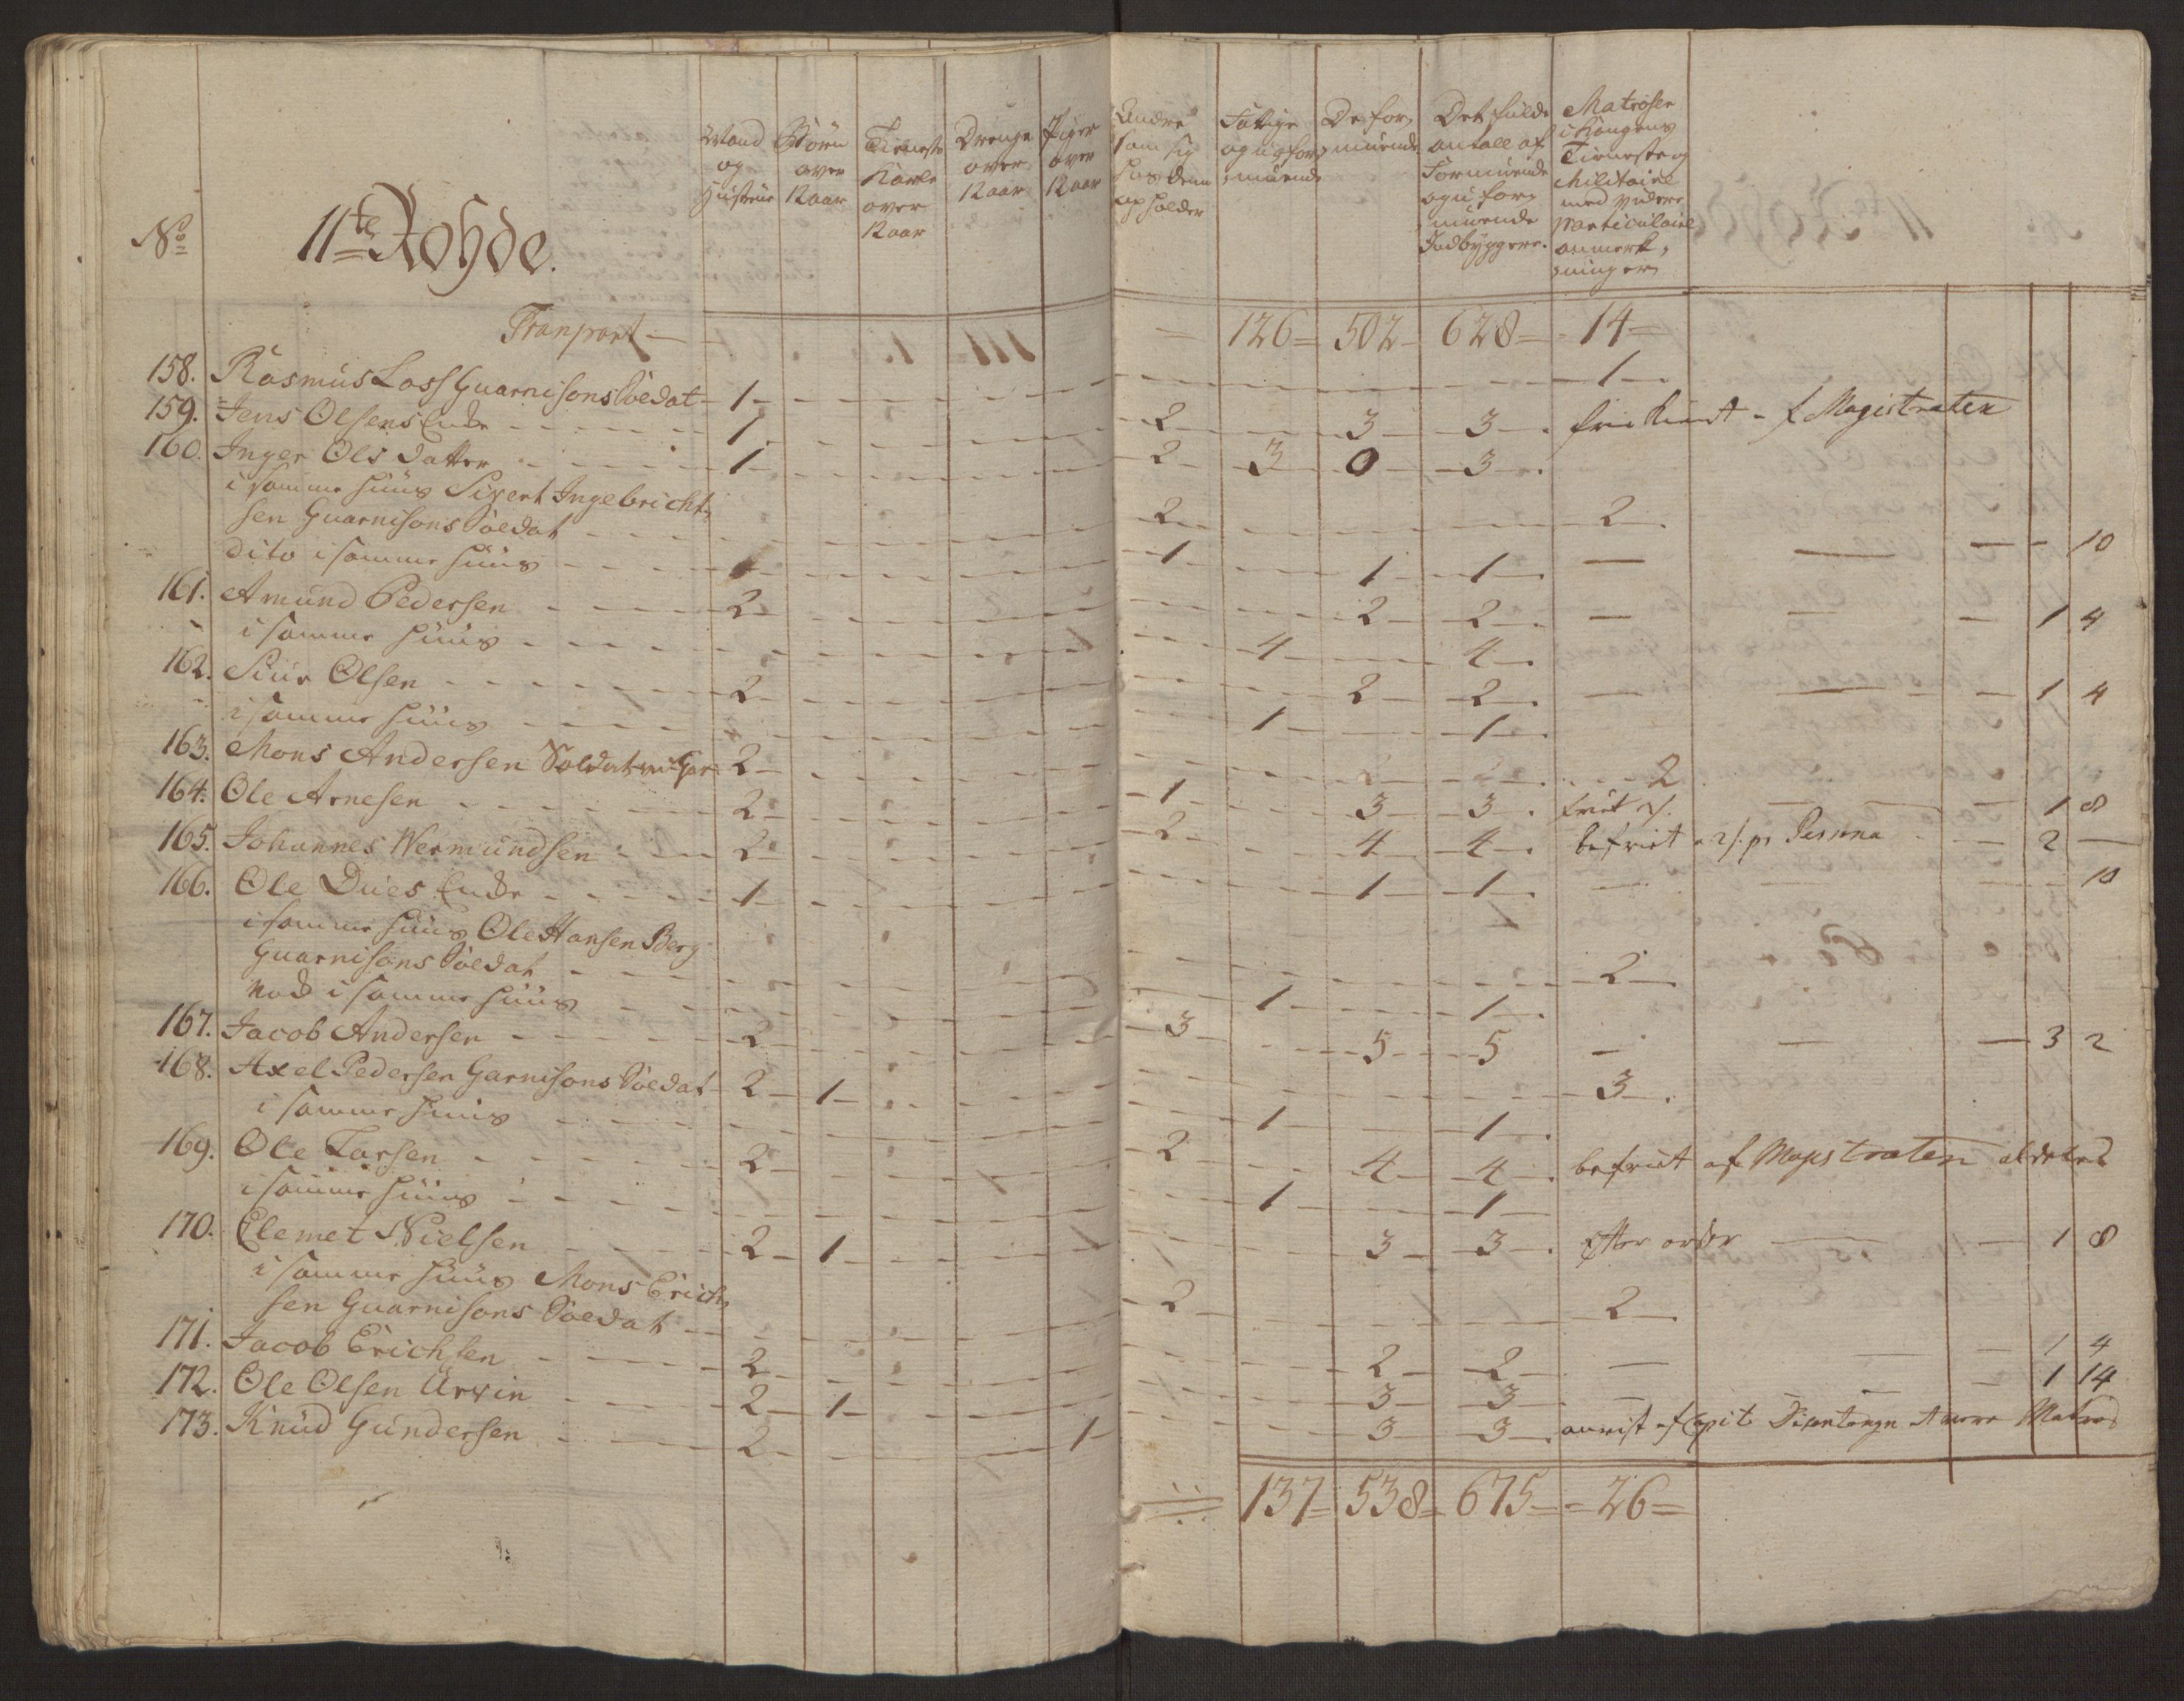 No 11te Rohde.
Mand og Hustrue
Börn over 12 aar
Tieneste Karle over 12 aar
Drenge over 12 aar
Piger over 12 aar
Andre som sig hos dem opholder
Fattige og uformuende
De formuende
Det fulde antall af Formuende og uformuende Indbyggere.
Matroser i Kongens Tieneste og Militaire med videre particulaire anmerkninger
Transport — 126 = 502 - 628 = 14 =
158. Rasmus Lass Guarnisons Soldat - 1 - 1 -
159. Jens Olsens Enke 1 - 2 - 3 - 3 - . fri kundt - f Magistraten
160. Inger Ols datter 1 - 2 - 3 - 0 - 3 - .
i samme huus Sivert Ingebricht,
sen Guarnisons Soldat - 2 - 2 - .
dito i samme huus - 1 - 1 - 1 - . — — — 10
161. Amund Pedersen 2 - 2 - 2 - . — — — 1 4
i samme huus - 4 - 4 - .
162. Siur Olsen 2 - 2 - 2 - . — — — 1 4
i samme huus - 1 - 1 - .
163. Mons Andersen Soldat 2 - 2
164. Ole Arnesen 2 - 1 - 3 - 3 - . — 1 8
165. Johannes Wermundsen 2 - 2 - 4 - 4 - . befriet 2 —
166. Ole Dues Enke 1 - 1 - 1 - . — — 10
i samme huus Ole Hansen Berg
Guarnisons Soldat - 2 - .
Nock i samme huus - 1 - 1 - .
167. Jacob Andersen 2 - 3 - 5 - 5 — — — 3 2
168. Axel Pedersen Garnisons Soldat - 2 - 1 - 3 - .
i samme huus - 1 - 1 - .
169. Ole Larsen 2 - 2 - 4 - 4 - . befriet af Magistraten aldeles
i samme huus - 1 - 1 -
170. Clemet Nielsen 2 - 1 - 3 - 3 - . Efter order — — 1 8
i samme huus Mons Erich,
sen Guarnisons Soldat - 2 - 2 - .
171. Jacob Erichsen 2 - 2 - 2 - — — — 1 4
172. Ole Olsen Urvin 2 - 1 - 3 - 3 - — — — 1 14
173. Knud Gundersen 2 - 1 - 3 - 3 - . anvist af Capit
137 = 538 = 675 = = 26 =